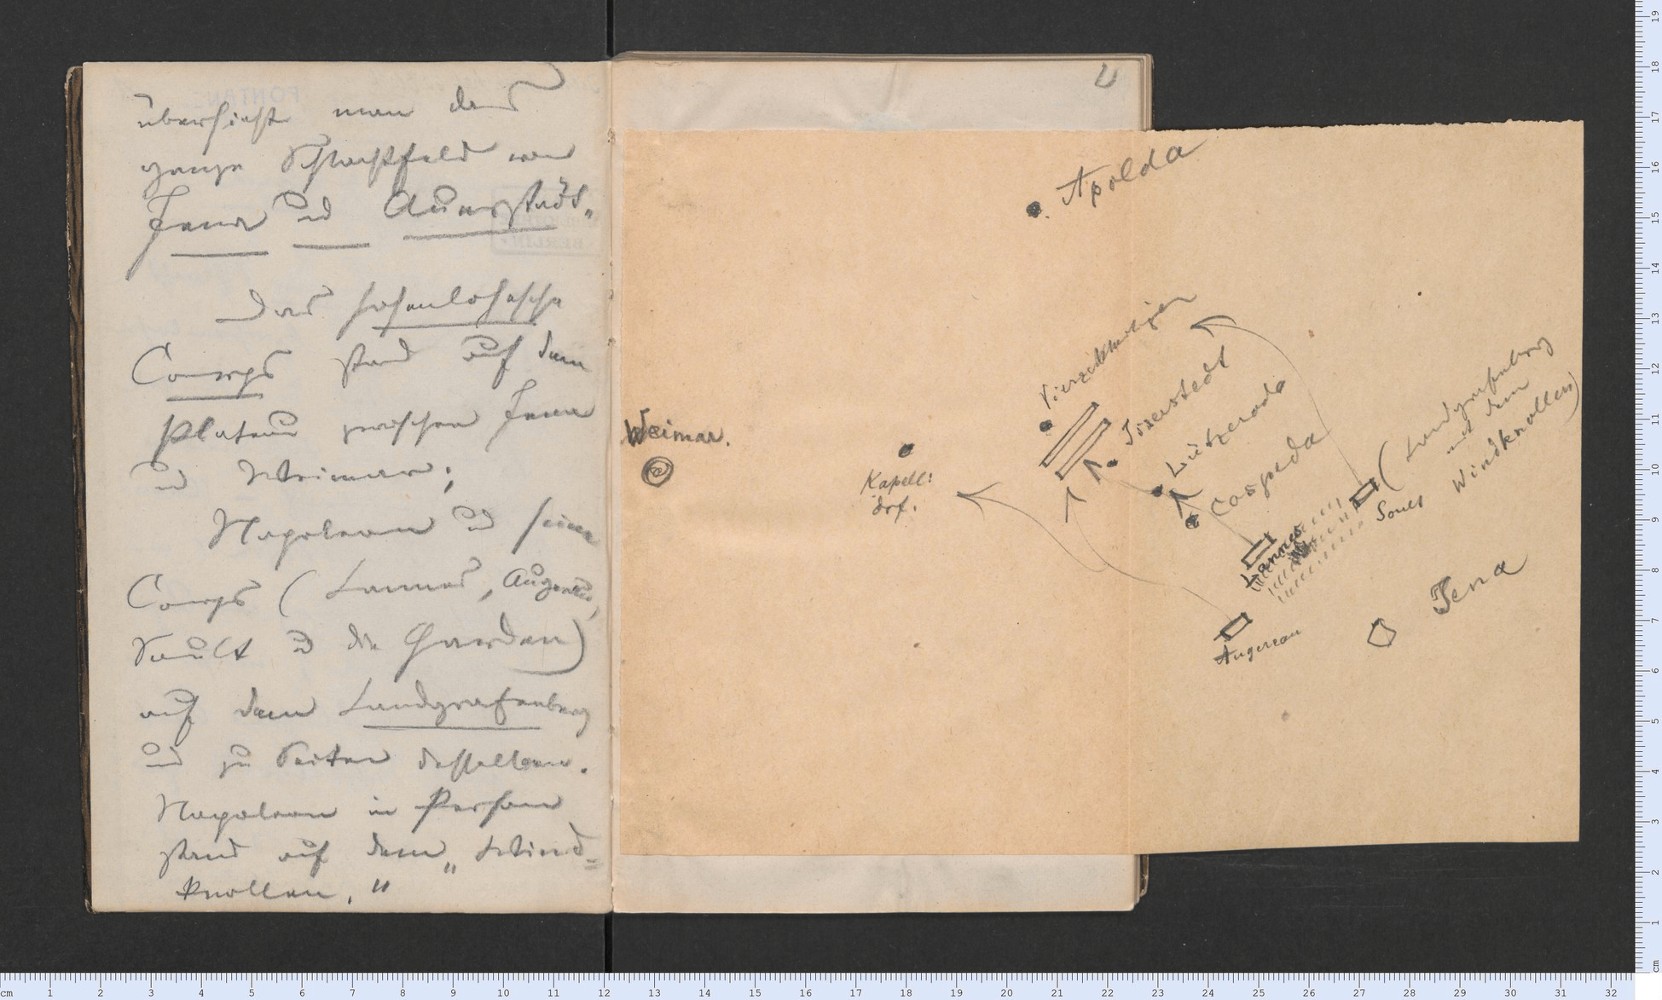 übersieht man das
ganze Schlachtfeld von
Jena und Auerstädt.
Das Hohenlohesche
Corps stand auf dem
Plateau zwischen Jena
und Weimar;
Napoleon und seine
Corps (Lannes, Augereau,
Soult und die Garden)
auf dem Landgrafenberg
und zu Seiten desselben.
Napoleon in Person
stand auf dem „Wind-
knollen."
Apolda
Vierzehnheiligen
Isserstedt
Lützeroda
Cospeda
(Landgrafenberg
mit dem
Windknollen)
Weimar.
Kapell:
drf.
Lannes
Soult
Augereau
Jena